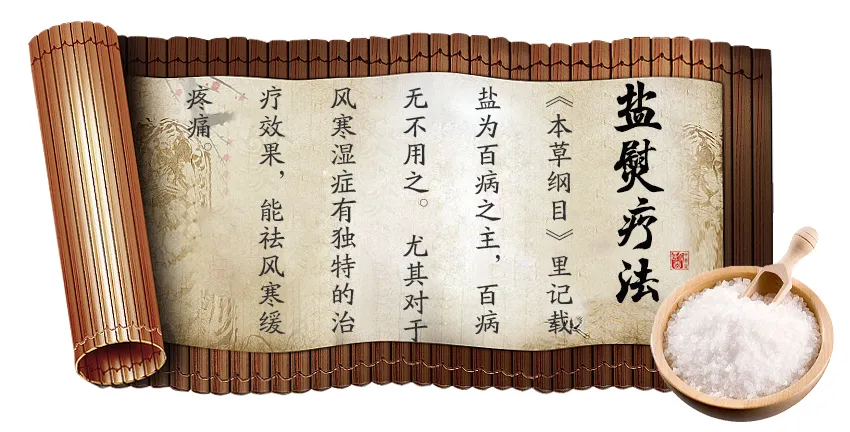 盐熨疗法
《本草纲目》里记载
盐为百病之主，百病
无不用之。尤其对于
风寒湿症有独特的治
疗效果，能祛风寒缓
疼痛